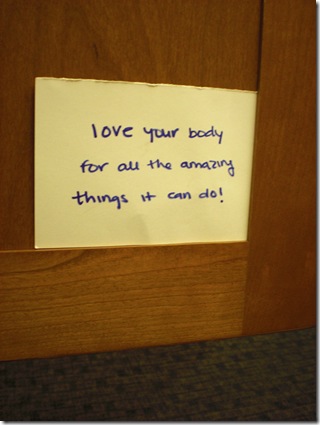 love your body
for all the amazing
things it can do!